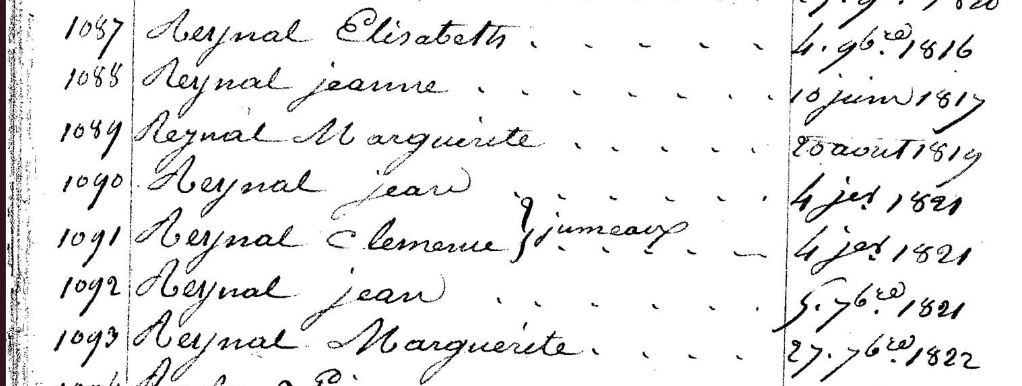 1087 Reynal Elisabeth . . . . . 4. 9bre 1816
1088 Reynal jeanne . . . . . . . 10 juin 1817
1089 Reynal Marguerite . . . . . 20 aout 1819
1090 Reynal jean . . . . . . 4 jer 1821
1091 Reynal Clemence } jumeaux . . . . 4 jer 1821
1092 Reynal jean . . . . . . 5. 7bre 1821
1093 Reynal Marguerite . . . . 27. 7bre 1822